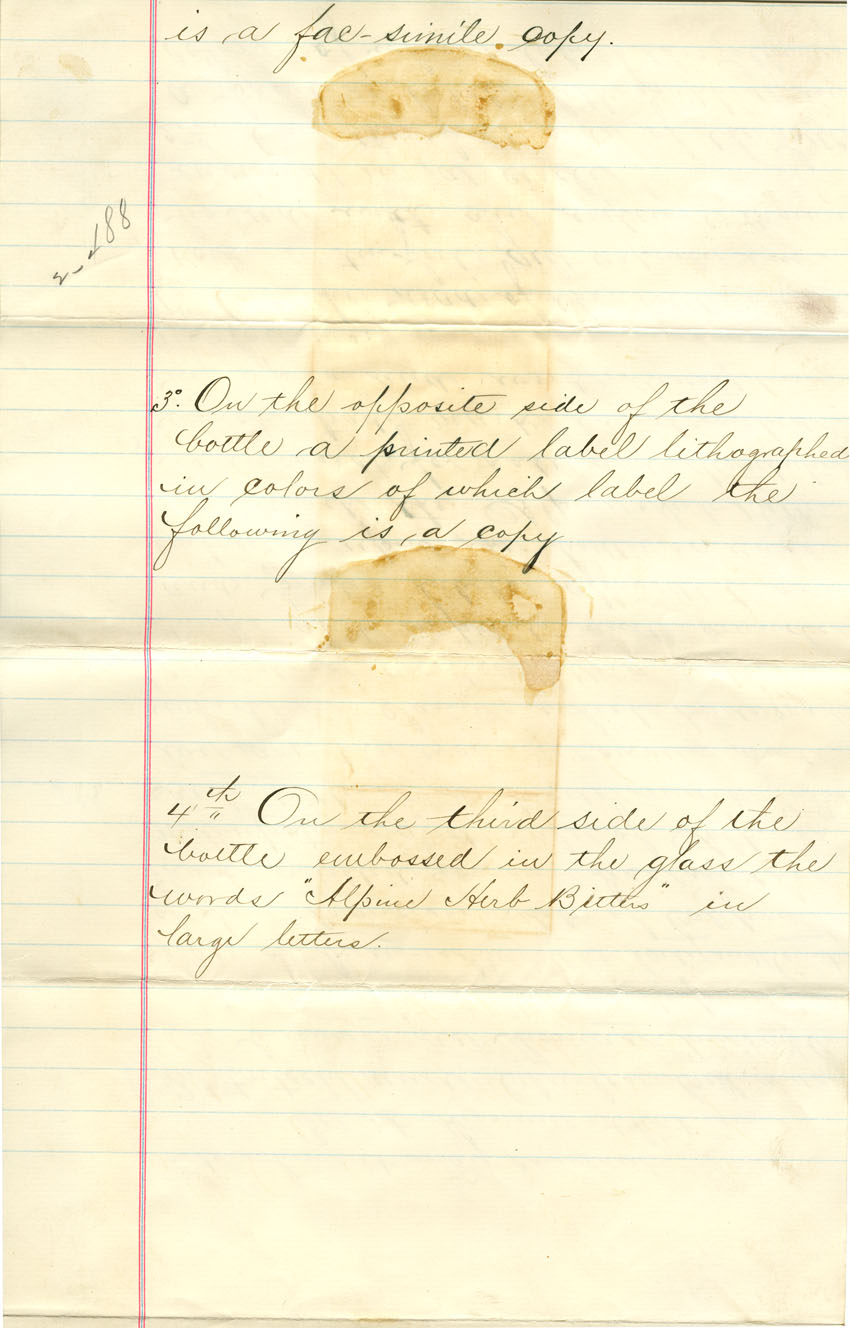 is a fac-simile copy.
2-188
3°. On the opposite side of the
bottle a printed label lithographed
in colors of which label the
following is a copy
4th On the third side of the
bottle embossed in the glass the
words "Alpine Herb Bitters" in
large letters.